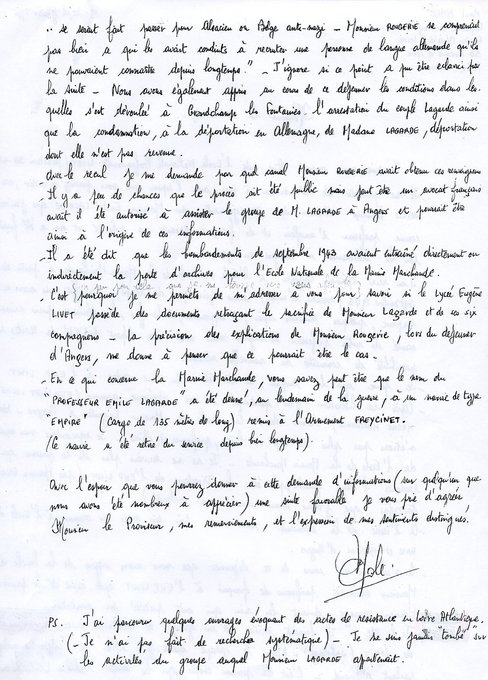 .. se serait fait passer pour Alsacien ou Belge anti-nazi - Monsieur ROUGERIE ne comprenait
pas bien "ce qui les avait conduits à recruter une personne de langue allemande qu'ils
ne pouvaient connaître depuis longtemps." - J'ignore si ce point a pu être éclairci par
la suite - Nous avons également appris au cours de ce déjeuner les conditions dans les-
quelles s'est déroulée à Grandchamps les Fontaines l'arrestation du couple Lagarde ainsi
que la condamnation, à la déportation en Allemagne, de Madame LAGARDE, déportation
dont elle n'est pas revenue.
Avec le recul je me demande par quel canal Monsieur ROUGERIE avait obtenu ces renseignements
- Il y a peu de chances que le procès ait été public mais peut être un avocat français
avait il été autorisé à assister le groupe de M. LAGARDE à Angers et pourrait être
ainsi à l'origine de ces informations.
- Il a été dit que les bombardements de septembre 1943 avaient entraîné directement ou
indirectement la perte d'archives pour l'Ecole Nationale de la Marine Marchande.
- C'est pourquoi je me permets de m'adresser à vous pour savoir si le Lycée Eugène
LIVET possède des documents retraçant le sacrifice de Monsieur Lagarde et de ses six
compagnons - La précision des explications de Monsieur Rougerie, lors du déjeuner
d'Angers, me donne à penser que ce pourrait être le cas.
- En ce qui concerne la Marine Marchande, vous savez peut être que le nom du
"PROFESSEUR EMILE LAGARDE" a été donné, au lendemain de la guerre, à un navire de type
"EMPIRE" (Cargo de 135 mètres de long) remis à l'Armement FREYCINET.
(Ce navire a été retiré du service depuis bien longtemps).
Avec l'espoir que vous pourrez donner à cette demande d'informations (sur quelqu'un que
nous avons été nombreux à apprécier) une suite favorable je vous prie d'agréer,
Monsieur le Proviseur, mes remerciements, et l'expression de mes sentiments distingués.
PS. J'ai parcouru quelques ouvrages évoquant des actes de resistance en Loire Atlantique.
(- Je n'ai pas fait de recherche systématique) - Je ne suis jamais "tombé" sur
les activités du groupe auquel Monsieur LAGARDE appartenait.